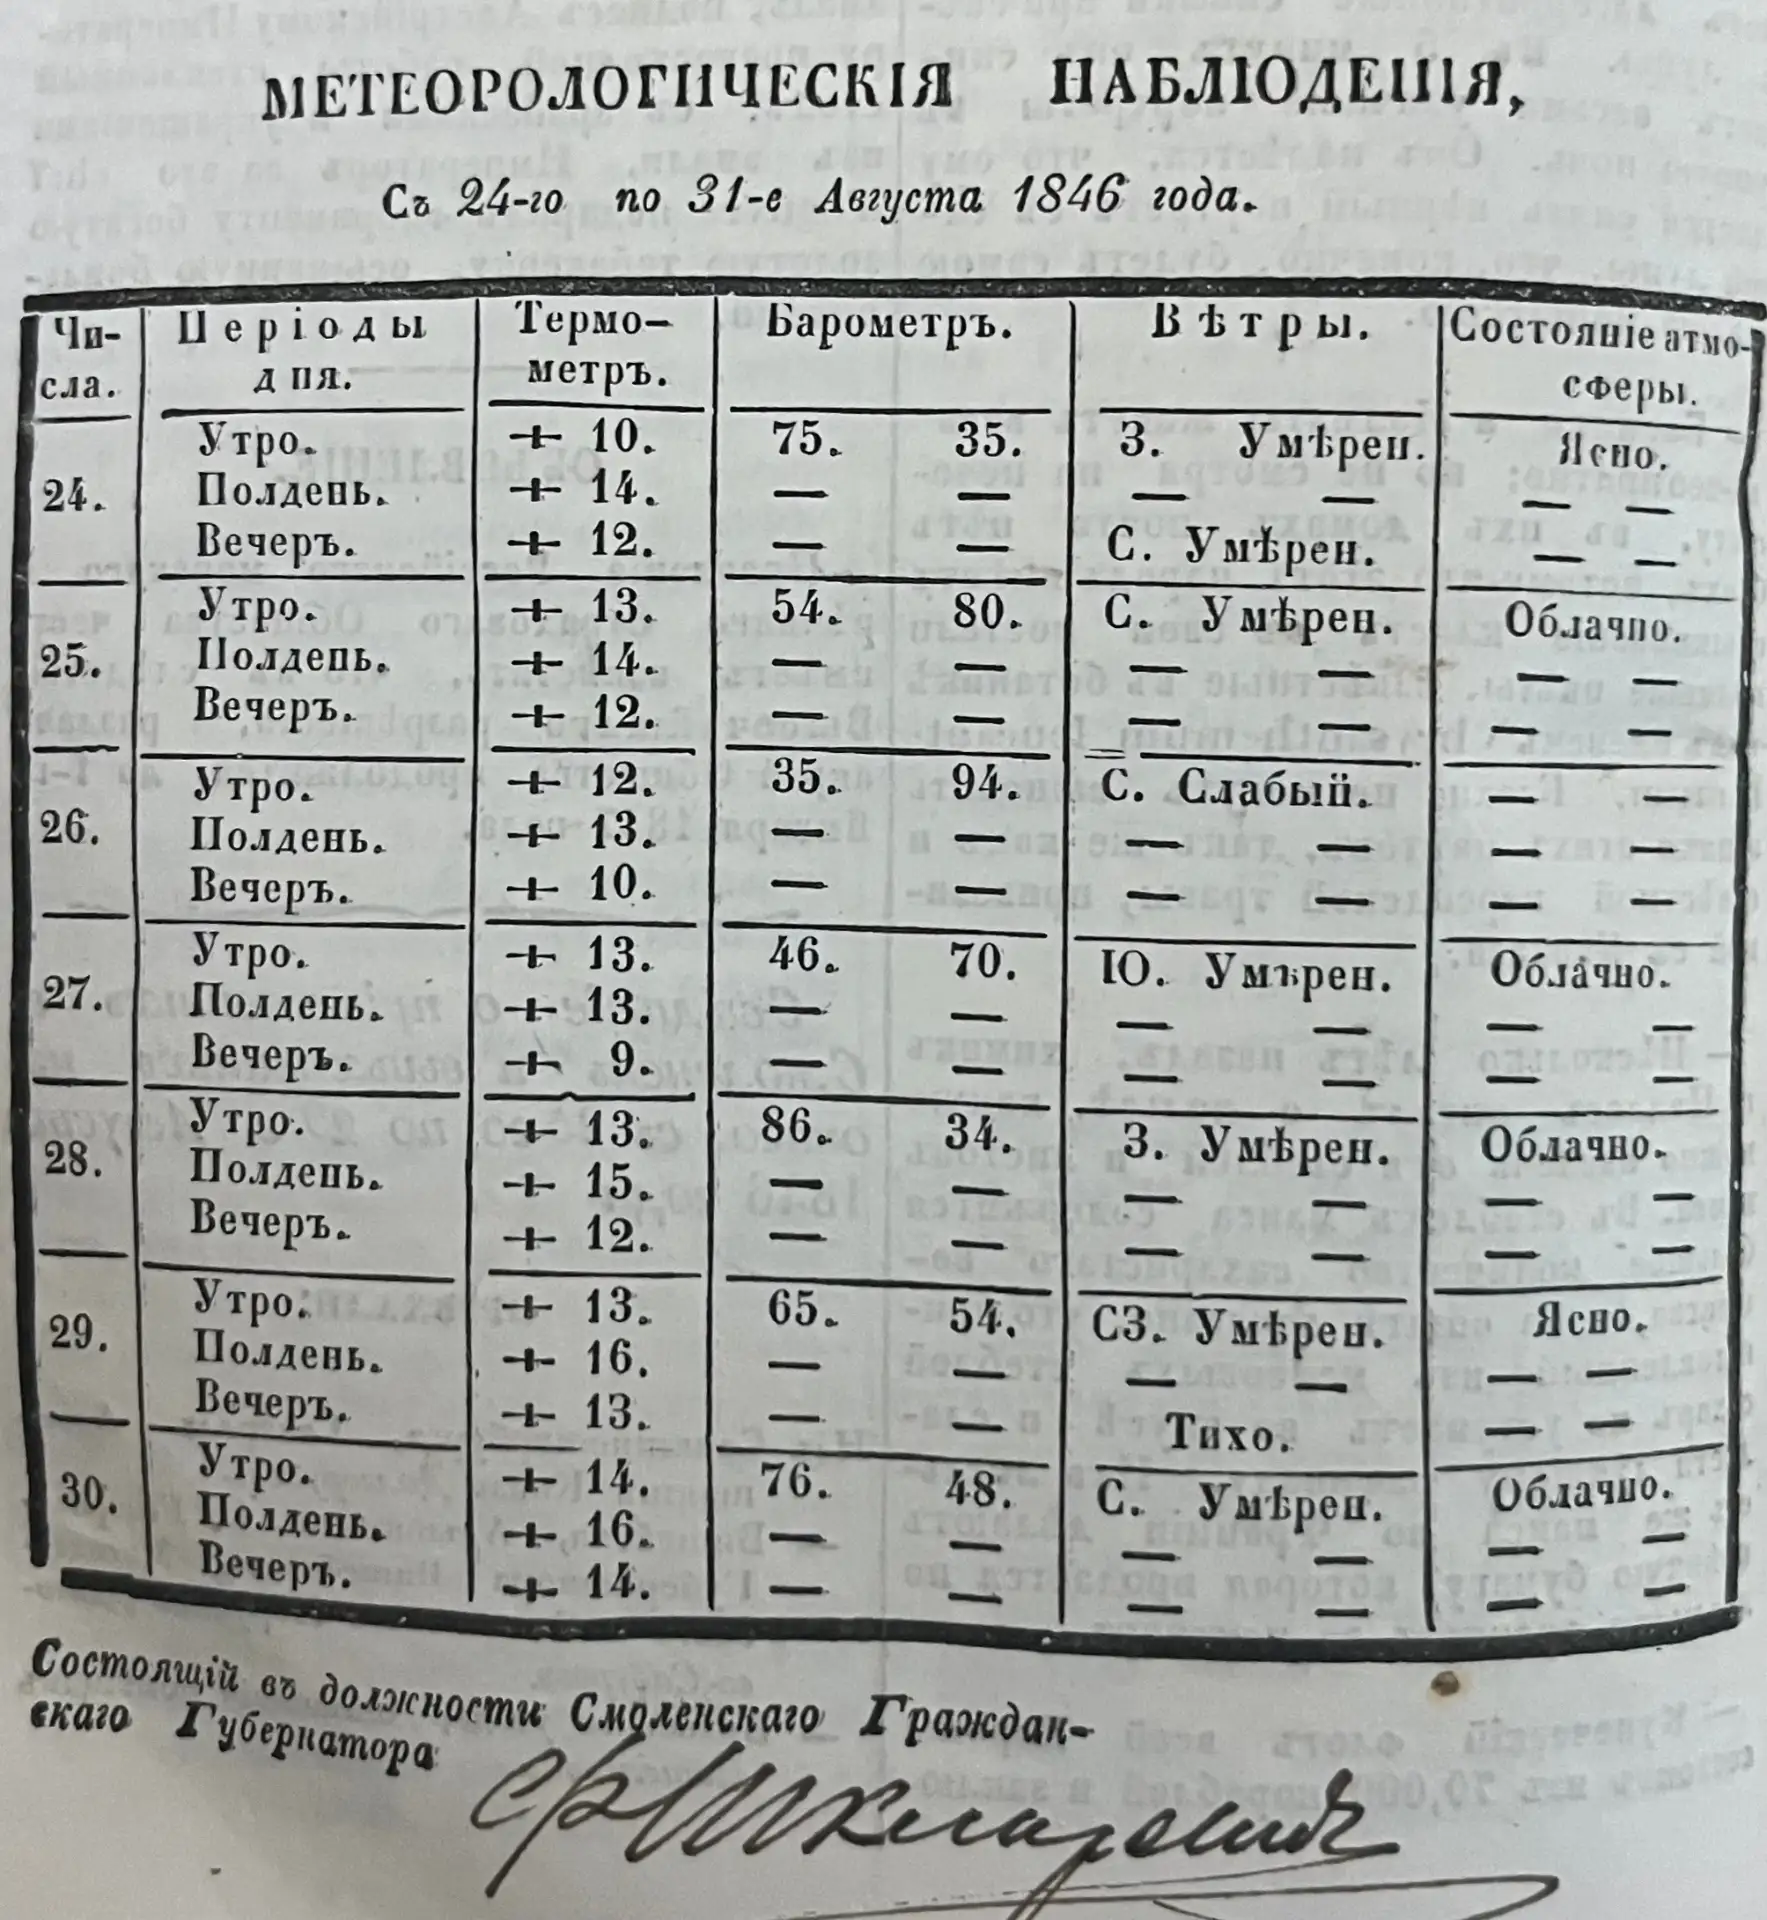 МЕТЕОРОЛОГИЧЕСКІЯ НАБЛЮДЕНІЯ,
Съ 24-го по 31-е Августа 1846 года.
Чи- Періоды Термо- Барометръ. Вѣтры. Состояніе атмо-
сла. дня. метръ. сферы.
Утро. + 10. 75. 35. З. Умѣрен. Ясно.
24. Полдень. + 14. — — — — — —
Вечеръ. + 12. — — С. Умѣрен. — —
Утро. + 13. 54. 80. С. Умѣрен. Облачно.
25. Полдень. + 14. — — — — — —
Вечеръ. + 12. — — — — — —
Утро. + 12. 35. 94. С. Слабый. — —
26. Полдень. + 13. — — — — — —
Вечеръ. + 10. — — — — — —
Утро. + 13. 46. 70. Ю. Умѣрен. Облачно.
27. Полдень. + 13. — — — — — —
Вечеръ. + 9. — — — — — —
Утро. + 13. 86. 34. З. Умѣрен. Облачно.
28. Полдень. + 15. — — — — — —
Вечеръ. + 12. — — — — — —
Утро. + 13. 65. 54. СЗ. Умѣрен. Ясно.
29. Полдень. + 16. — — — — — —
Вечеръ. + 13. — — Тихо. — —
Утро. + 14. 76. 48. С. Умѣрен. Облачно.
30. Полдень. + 16. — — — — — —
Вечеръ. + 14. — — — — — —
Состоящій въ должности Смоленскаго Граждан-
скаго Губернатора